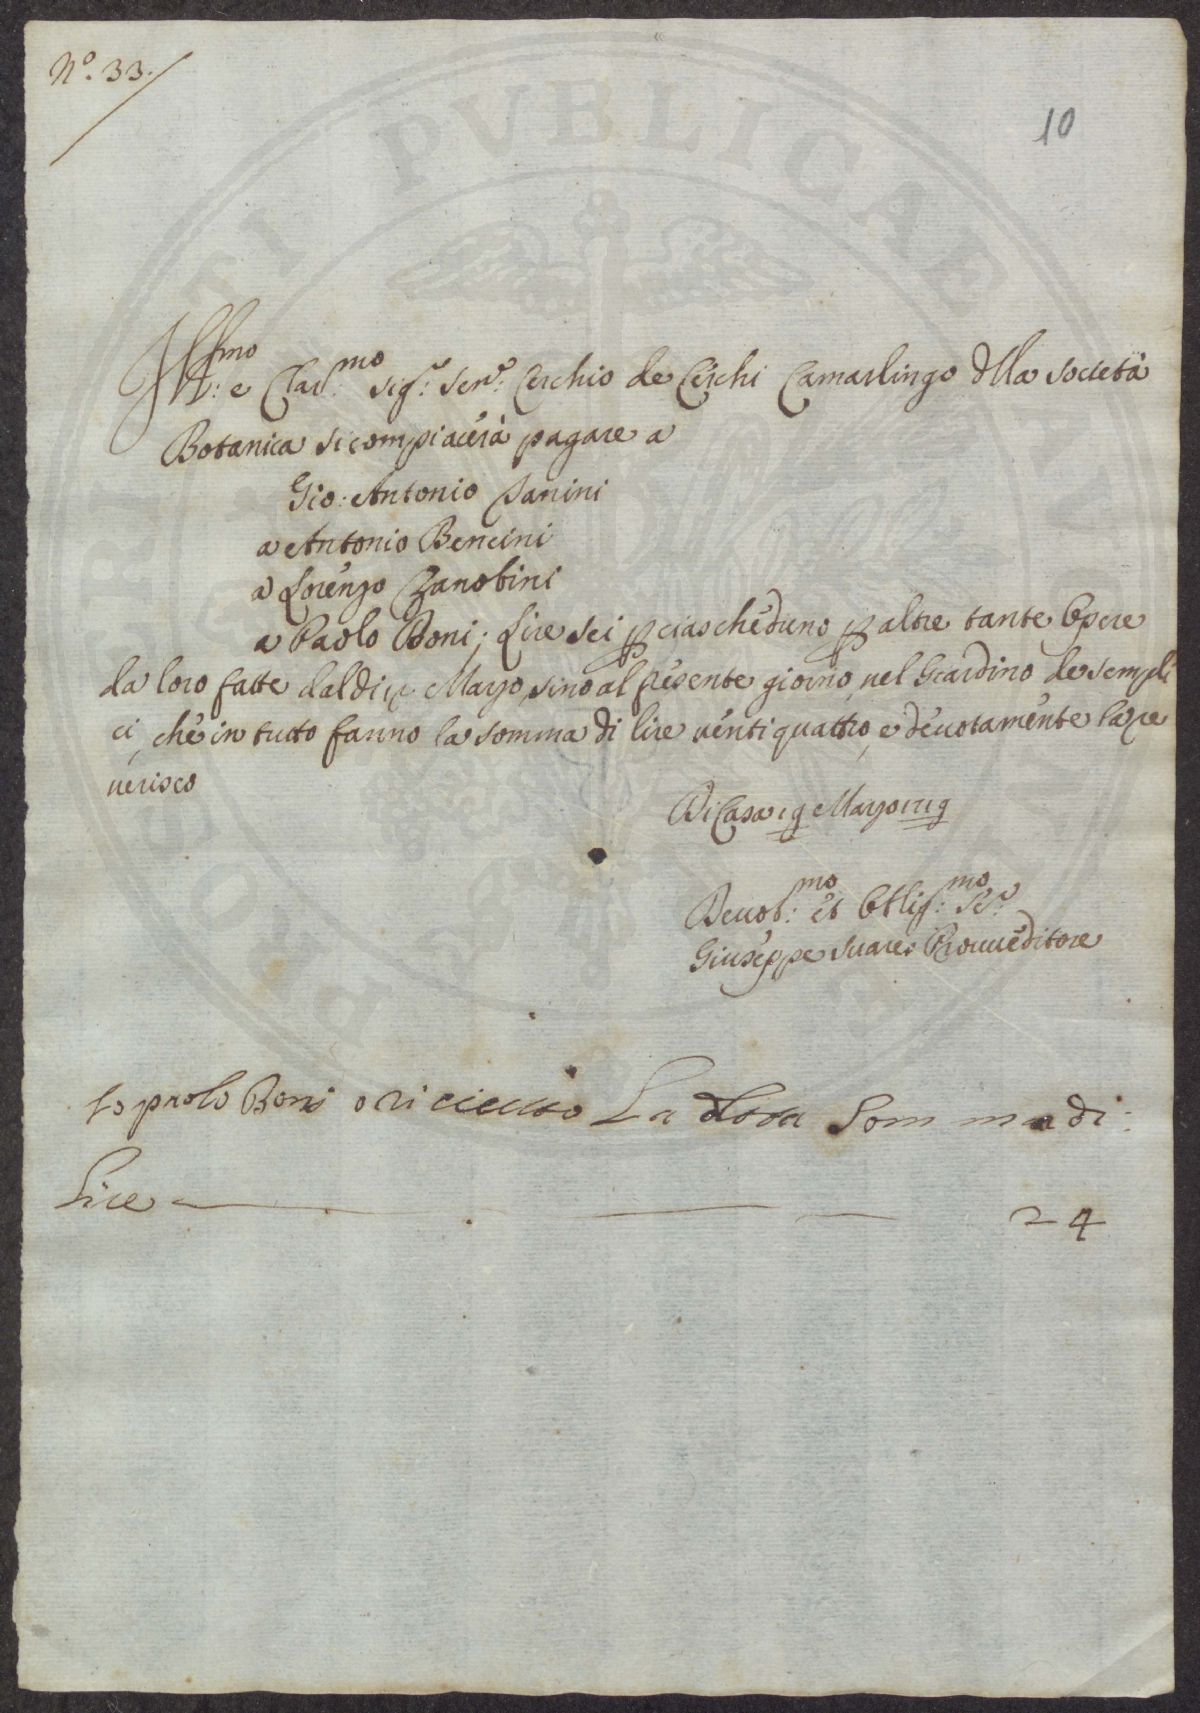 Nº. 33.
10
Ill.mo e Clar.mo Sig.r Sen.r Cerchio de Cerchi Camarlingo dlla Società
Botanica si compiacerà pagare a
Gio: Antonio Sanini
a Antonio Bencini
a Lorenzo Zanobini
a Paolo Boni; Lire sei p ciascheduno p altre tante Opere
da loro fatte dal di Marzo, sino al presente giorno, nel Giardino de sempli
ci, che in tutto fanno la somma di lire ventiquattro, e devotamente la re
verisco
Di Casa 19 Marzo
Devot.mo et Obblig.mo Se.r
Giuseppe Suares Provveditore
Io paolo Boni o riceuto La detta Somma di:
Lire 24
PUBLICAE